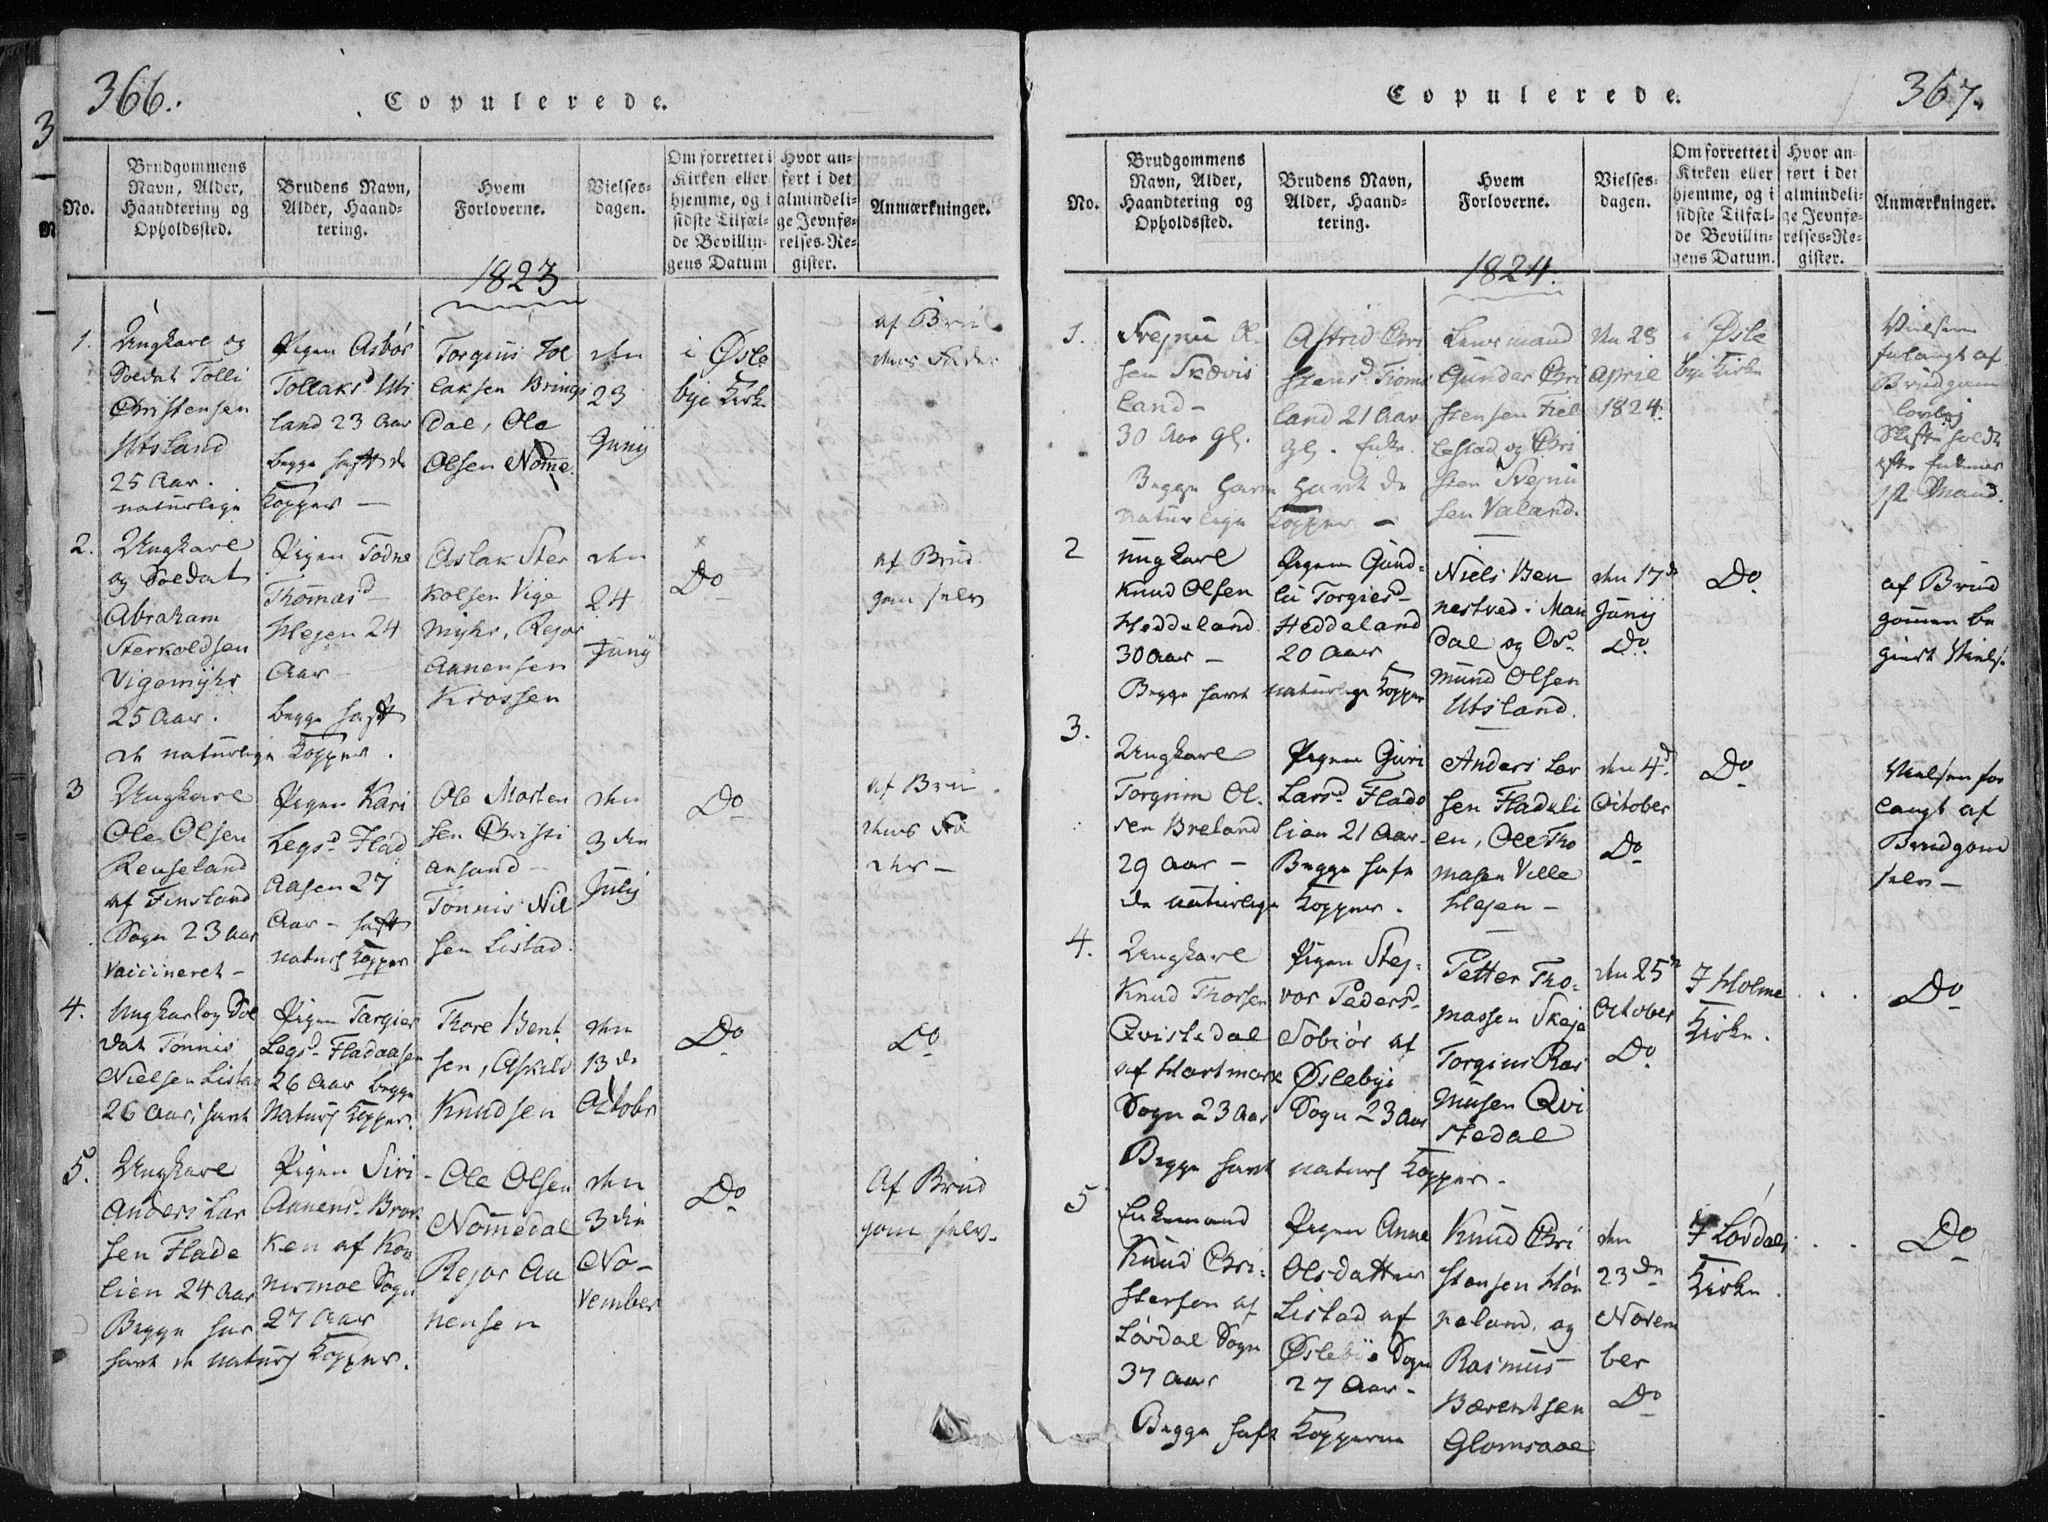 366.
Copulerede.
No.
Brudgommens
Navn, Alder,
Haandtering og
Opholdssted.
Brudens Navn,
Alder, Haand-
tering.
Hvem
Forloverne.
Vielses-
dagen.
Om forrettet i
Kirken eller
hjemme, og i
sidste Tilfæl-
de Bevillin-
gens Datum
Hvor an-
ført i det
almindeli-
ge Jevnfø-
relses-Re-
gister.
Anmærkninger.
1823
1.
Ungkarl og
Soldat Tolli
Christensen
Utsland
25 Aar.
naturlige
Pigen Asbør
Tollaksd Uts
land 23 Aar
begge haft de
Kopper —
Torgius Tol
laksen Brings
Dal, Ole
Olsen Nome.
den
23
Junij
i Øsle
bye Kirke
af Bru
dens Fader
2.
Ungkarl
og Soldat
Abraham
Sterkoldsen
Vigemyhr
25 Aar.
de naturlige
Pigen Todne
Thomasd—
Hegen 24
Aar
begge haft
Kopper.
Aslak Ster
kolsen Vige
myhr, Rejor
Aanensen
Krossen
den
24
Junij
Do
af Brud
gom selv
3
Ungkarl
Ole Olsen
Reuseland
af Finsland
Sogn 23 aar
Vaccineret —
Pigen Kari
Legsd Flad
Aasen 27
Aar — haft
naturl Kopper
Ole Morten
sen Christi
ansand —
Tønnis Nil
sen Listad.
den
3 die
Julij
Do
af Bru
dens Fa
der —
4.
Ungkarl og Sol
dat Tønnis
Nielsen Listad
26 Aar, havt
Pigen Targier
Legsd Fladaasen
26 Aar begge
Naturl Kopper.
Thore Bent
sen, Askild
Knudsen
den
13 de
Octobr
Do
Do
5.
Ungkarl
Anders Lar
sen Flade
lien 24 Aar
Begge har
havt de naturl Kopper.
Pigen Siri
Aanensd Brok
ken af Kon
nismoe Sogn
27 Aar
Ole Olsen
Nomedal
Rejor Aa
nensen
den
3 die
No—
vember
Do
Af Brud
gom selv.
367.
Copulerede.
No.
Brudgommens
Navn, Alder,
Haandtering og
Opholdssted.
Brudens Navn,
Alder, Haand-
tering.
Hvem
Forloverne.
Vielses-
dagen.
Om forrettet i
Kirken eller
hjemme, og i
sidste Tilfæl-
de Bevillin-
gens Datum.
Hvor an-
ført i det
almindeli-
ge Jevnfø-
relses-Re-
gister.
Anmærkninger.
1824.
1.
Svejnu Ol
sen Skævis
land —
30 Aar gl.
Begge have havt de
naturlige Kopper —
Astrid Chri
stensd Tioms
land 21 Aar
gl. Enke.
Lensmand
Gunder Chri
stensen Fiel
lestad og Chri
sten Svejnu
sen Valand.
den 28
April
1824.
i Øsle
bye Kirke
Vielsen
forlangt af
Brudgom
lovlig
Skifte holdt
efter Enkens
1st Mand.
2
Ungkarl
Knud Olsen
Heddeland
30 Aar —
Begge havt naturlige Kopper
Pigen Gund-
lei Torgiesd—
Heddeland
20 Aar
Niels Ben
nestved i Man
Dal og Osd
mund Olsen
Utsland.
den 17d
Junij
Do
Do
af Brud
gomen be
giert Vielse
3.
Ungkarl
Torgrim Ol.
sen Breland
29 Aar —
de naturlige Kopper.
Pigen Guri
Larsd Flade
lien 21 Aar
Begge haft
Anders Lar
sen Fladeli
en, Ole Tho
masen Ville
Hegen —
den 4d
October
Do
Do
Vielsen for
langt af
Brudgom
selv —
4.
Ungkarl
Knud Thorsen
Qvistedal
af Hartmark
Sogn 23 Aar
Begge havt naturl Kopper.
Pigen Stej-
vor Pedersd—
Sobiør af
Øslebye
Sogn 23 Aar
Petter Tho-
massen Skeje
Torgius Ras
musen Qvi
stedal
den 25de
October
Do
I Holme
Kirke.
Do
5
Enkemand
Knud Chri-
stensen af
Løvdal Sogn
37 aar
Begge haft Kopperne
Pigen Anne
Olsdatter
Listad af
Øslebye Sogn
27 Aar —
Knud Chri
stensen Høi
neland. og
Rasmus
Bærentsen
Glomsaae
den
23de
Novem
ber
Do
I Løvdals
Kirke.
Do